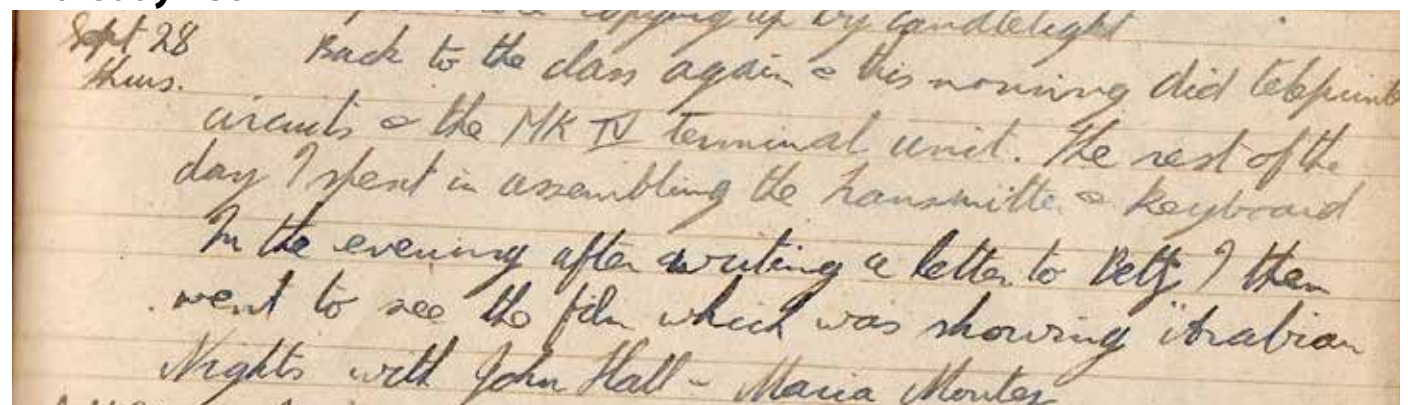 copying up by candlelight
Sept 28 Back to the class again & this morning did teleprinte
thurs.
circuits & the MK IV terminal unit. The rest of the
day I spent in assembling the transmitter & keyboard
In the evening after writing a letter to Betty I then
went to see the film which was showing "Arabian
Nights with John Hall - Maria Montez